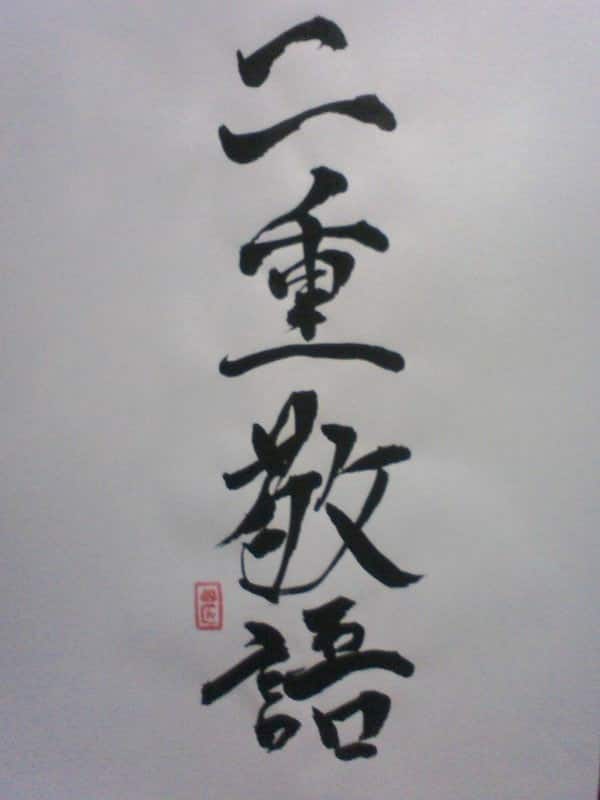 二重敬語